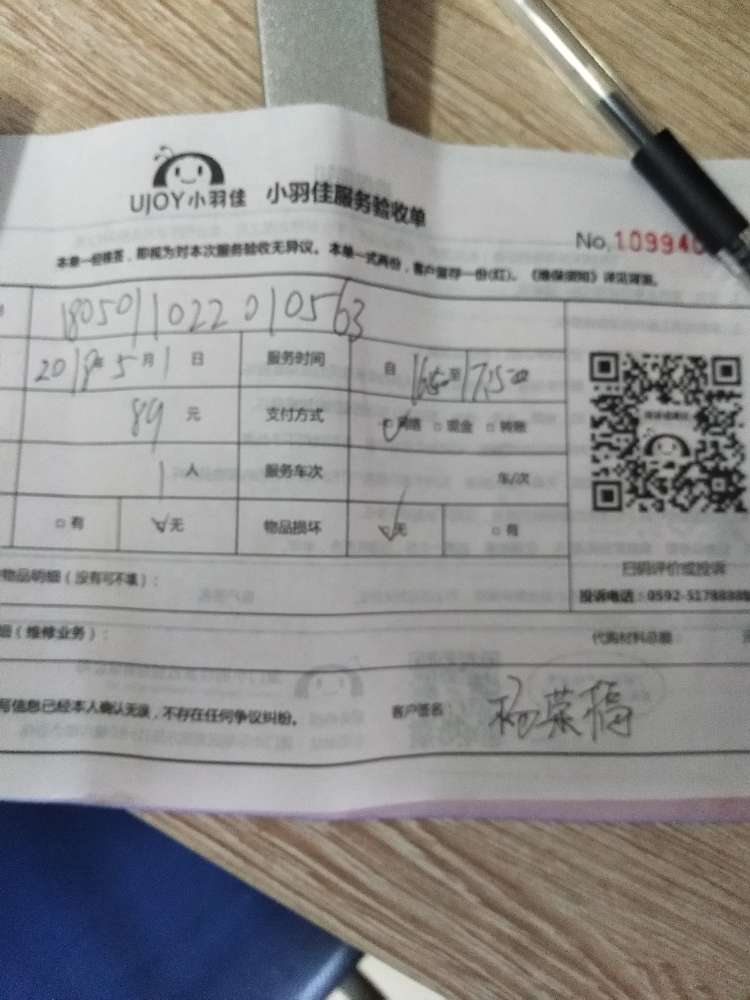 UJOY小羽佳 小羽佳服务验收单
No.109940
本单一经签签，即视为对本次服务验收无异议。本单一式两份，客户留存一份(红)。《维保须知》详见背面。
1805011022010563
2018年5月1日 服务时间 自 至
89元 支付方式 网络 现金 转账
1人 服务车次 车/次
有 无 物品损坏 无 有
扫码评价或投诉
物品明细（没有可不填）：
投诉电话：0592-5178888
细（维修业务）： 代购材料总额
写信息已经本人确认无误，不存在任何争议纠纷。 客户签名：杨荣福